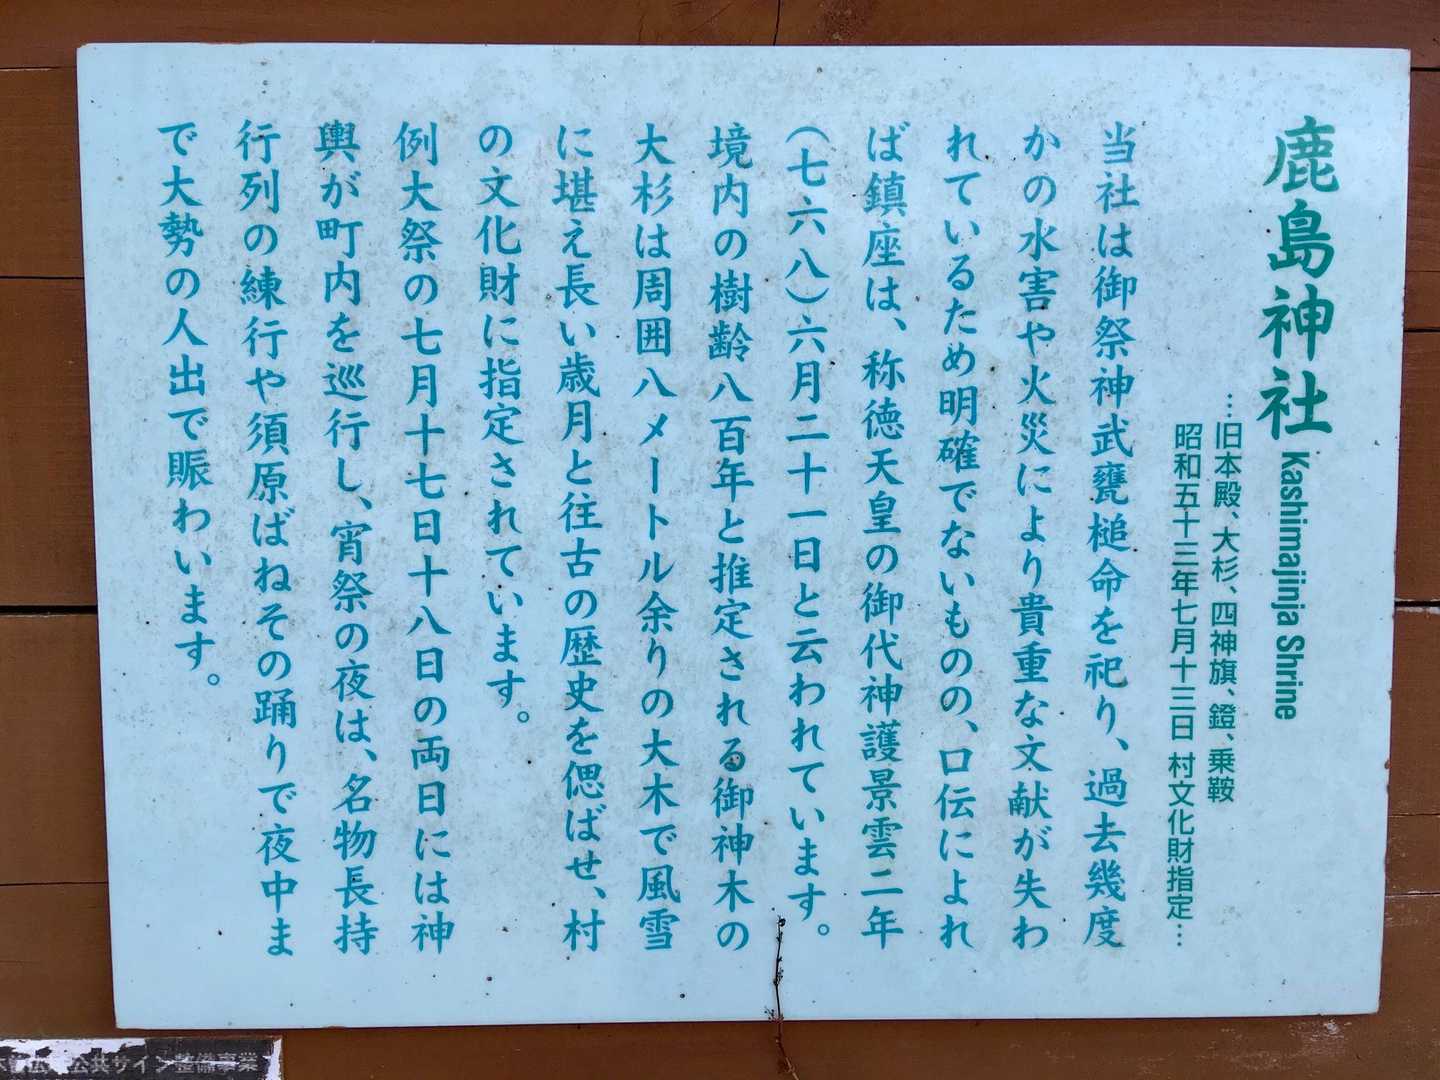 鹿島神社 Kashimajinja Shrine
…旧本殿、大杉、四神旗、鐙、乗鞍
昭和五十三年七月十三日 村文化財指定…
当社は御祭神武甕槌命を祀り、過去幾度
かの水害や火災により貴重な文献が失わ
れているため明確でないものの、口伝によれ
ば鎮座は、称徳天皇の御代神護景雲二年
(七六八)六月二十一日と云われています。
境内の樹齢八百年と推定される御神木の
大杉は周囲八メートル余りの大木で風雪
に堪え長い歳月と往古の歴史を偲ばせ、村
の文化財に指定されています。
例大祭の七月十七日十八日の両日には神
輿が町内を巡行し、宵祭の夜は、名物長持
行列の練行や須原ばねその踊りで夜中ま
で大勢の人出で賑わいます。
公共サイン整備事業